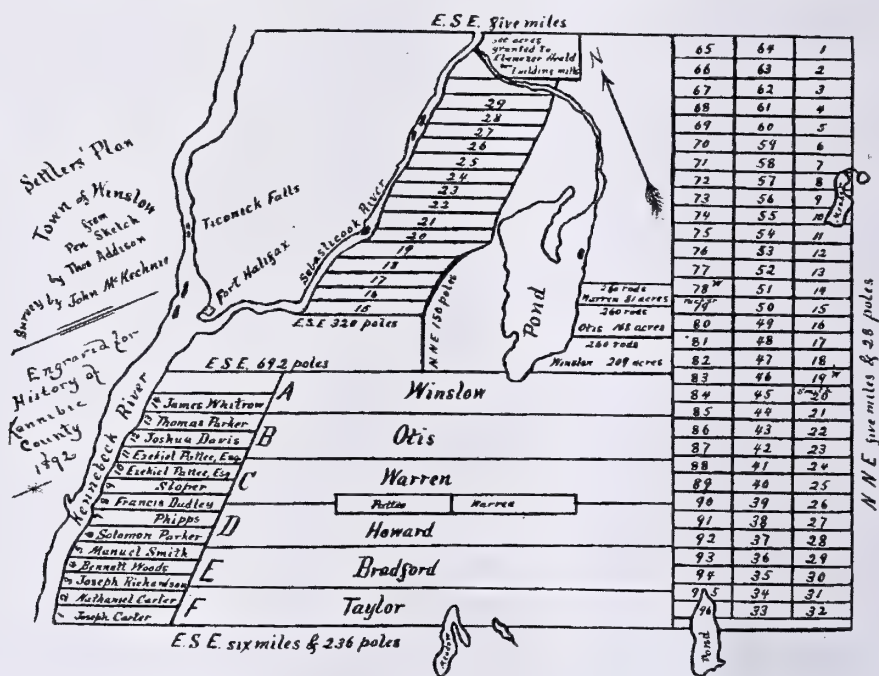 E.S.E. five miles
Settlers' Plan
Town of Winslow
from
Pen Sketch
by Thos Addison
Survey by John McKechnie
Engraved for
History of
Kennebec
County
1892
Kennebeck River
Ticonick Falls
Fort Halifax
Sebasticook River
acres
granted to
Ebenezer Heald
building mills
N
29
28
27
26
25
24
23
22
21
20
19
18
17
16
15
E.S.E 320 poles
NNE 150 poles
Pond
260 rods
Warren 81 acres
260 rods
Otis 168 acres
260 rods
Winslow 209 acres
E.S.E. 692 poles
14 James Whitrow
13 Thomas Parker
12 Joshua Davis
11 Ezekiel Pattee, Esq
10 Ezekiel Pattee, Esq
9 Sloper
8 Francis Dudley
7 Phipps
6 Solomon Parker
5 Manuel Smith
4 Bennett Woods
3 Joseph Richardson
2 Nathaniel Carter
1 Joseph Carter
A Winslow
B Otis
C Warren
Pattee Warren
D Howard
E Bradford
F Taylor
E.S.E. six miles & 236 poles
Meadow
65 64 1
66 63 2
67 62 3
68 61 4
69 60 5
70 59 6
71 58 7
72 57 8
73 56 9
74 55 10
75 54 11
76 53 12
77 52 13
78 51 14
79 50 15
80 49 16
81 48 17
82 47 18
83 46 19
84 45 20
85 44 21
86 43 22
87 42 23
88 41 24
89 40 25
90 39 26
91 38 27
92 37 28
93 36 29
94 35 30
95 34 31
96 33 32
Pond
Meadow
NNE five miles & 28 poles